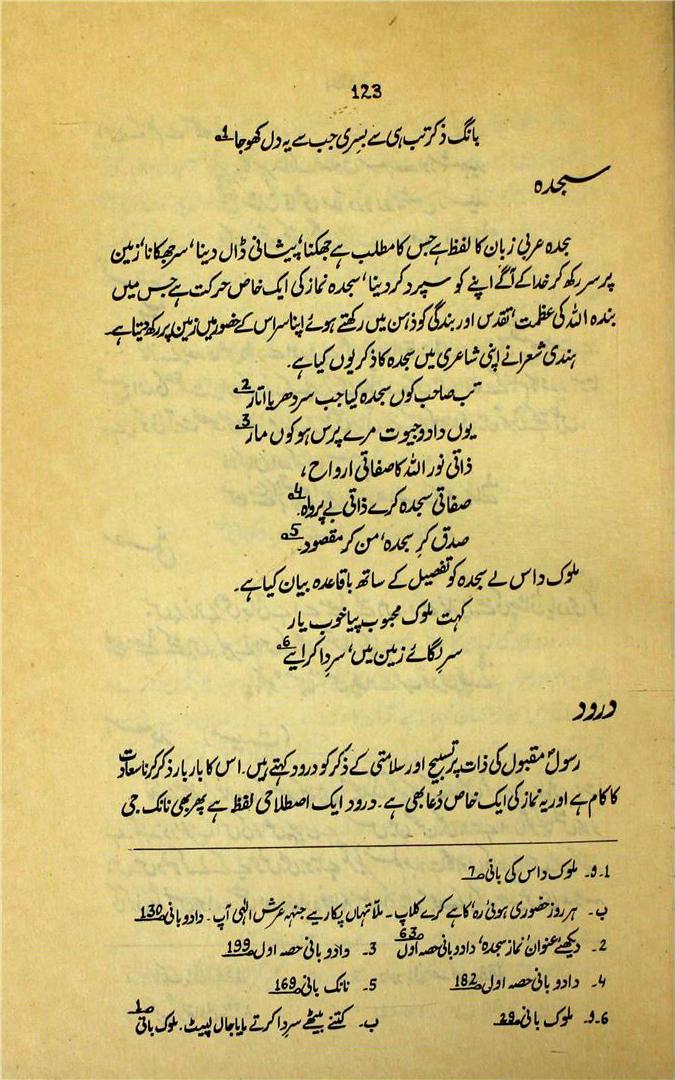 123
بانگ ذکر تب ہی سے بسری جب سے یہ دل کھوجا 1؎
سجدہ
سجدہ عربی زبان کا لفظ ہے جس کا مطلب ہے جھکنا، پیشانی ڈال دینا، سر جھکانا، زمین
پر سر رکھ کر خدا کے آگے اپنے کو سپرد کر دینا، سجدہ نماز کی ایک خاص حرکت ہے جس میں
بندہ اللہ کی عظمت، تقدس اور بندگی کو ذہن میں رکھتے ہوئے اپنا سر اس کے حضور میں زمین پر رکھ دیتا ہے۔
ہندی شعرا نے اپنی شاعری میں سجدہ کا ذکر یوں کیا ہے۔
تب صاحب کوں سجدہ کیا جب سر دھریا اتار 2؎
یوں دادو جیوت مرے پرس ہو کوں مار 3؎
ذاتی نور اللہ کا صفاتی ارواح،
صفاتی سجدہ کرے ذاتی بے پرواہ۔ 4؎
صدق کر سجدہ، من کر مقصود۔ 5؎
ملوک داس نے سجدہ کو تفصیل کے ساتھ باقاعدہ بیان کیا ہے۔
کہت ملوک محبوب پیا خوب یار
سر لگائے زمین میں، سردا کرایے 6؎
درود
رسولؐ مقبول کی ذات پر تسبیح اور سلامتی کے ذکر کو درود کہتے ہیں۔ اس کا بار بار ذکر کرنا سعادت
کا کام ہے اور یہ نماز کی ایک خاص دُعا بھی ہے۔ درود ایک اصطلاحی لفظ ہے پھر بھی نانک جی
1۔ و۔ ملوک داس کی بانی ص 7
ب۔ ہر روز حضوری ہوئی رہ، کاہے کرے کلاپ۔ ملا تہاں پکارے جنہہ عرش الٰہی آپ۔ دادو بانی ص 130
2۔ دیکھے عنوان 'نماز سجدہ' دادو بانی حصہ اول ص 63 3۔ دادو بانی حصہ اول ص 199
4۔ دادو بانی حصہ اول ص 182 5۔ نانک بانی ص 169
6۔ و۔ ملوک بانی ص 29 ب۔ کتنے بیٹھے سردا کرتے مایا جال لپیٹ۔ ملوک بانی ص 1